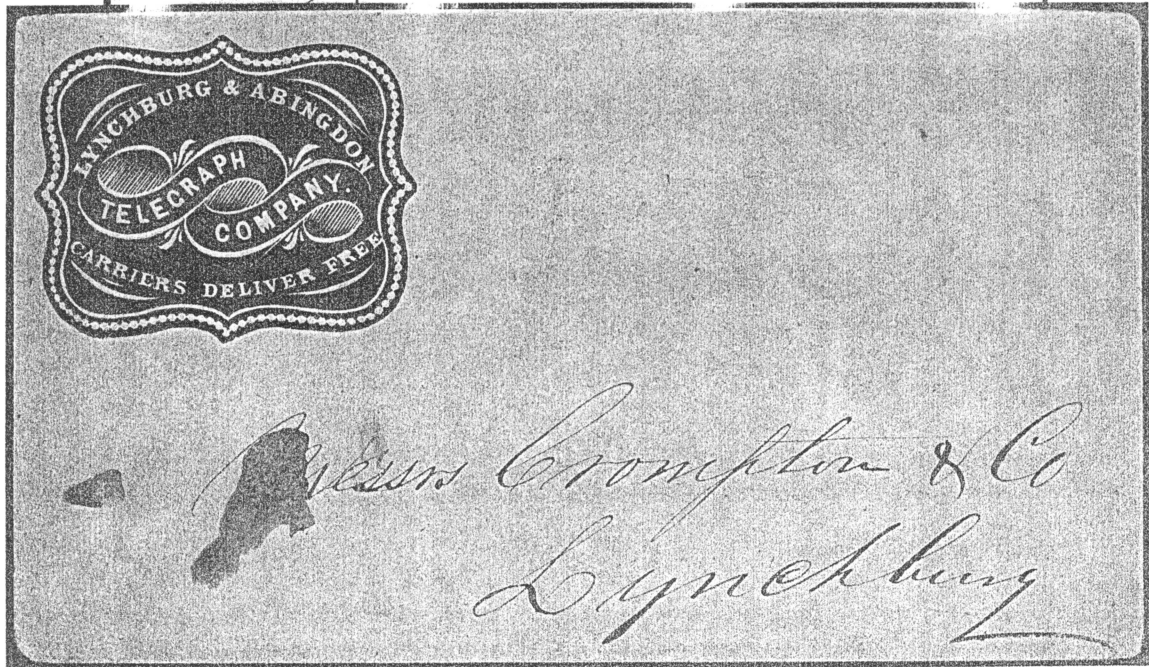 LYNCHBURG & ABINGDON
TELEGRAPH
COMPANY.
CARRIERS DELIVER FREE
Messrs Crompton & Co
Lynchburg